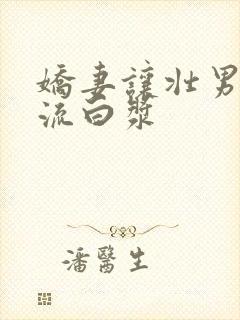 嬌妻讓壯男
流白漿
潘醫生